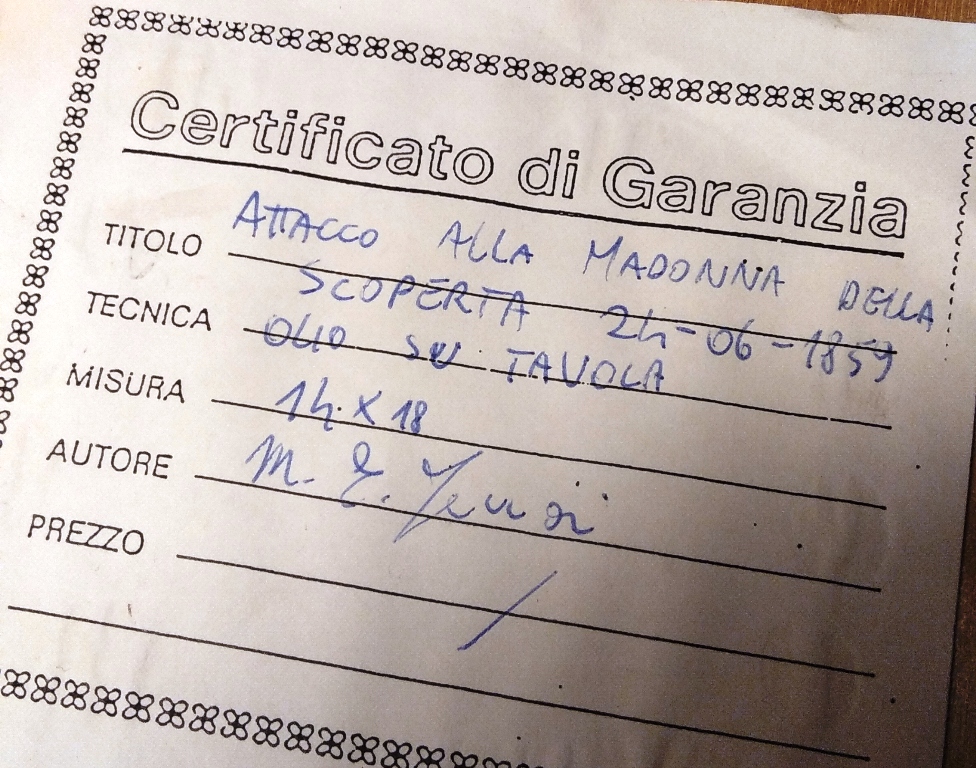 Certificato di Garanzia
TITOLO ATTACCO ALLA MADONNA DELLA
SCOPERTA 24-06-1859
TECNICA OLIO SU TAVOLA
MISURA 14 X 18
AUTORE M. E.
PREZZO /